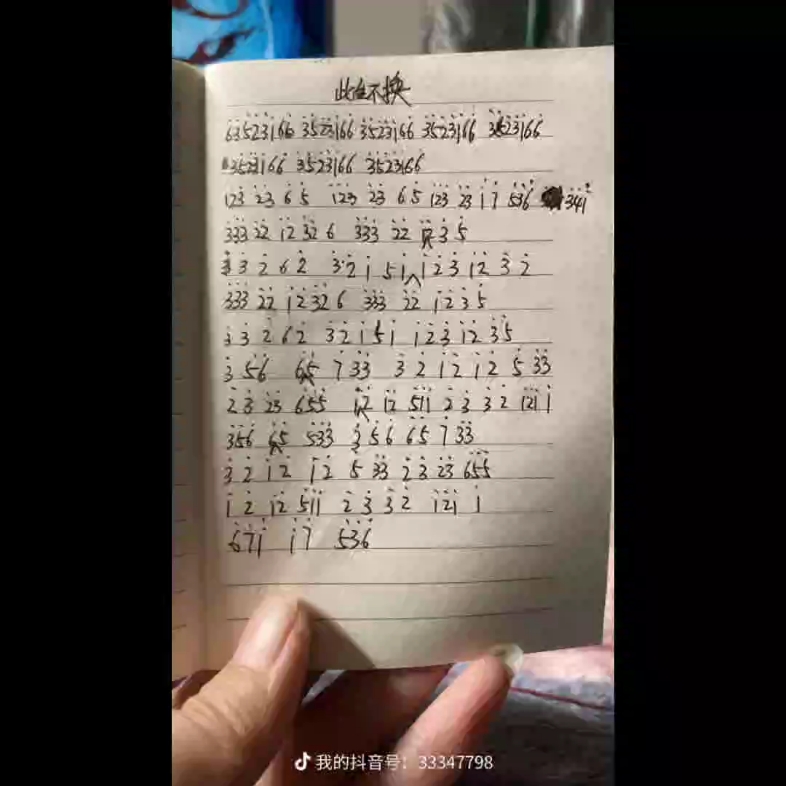 此生不换
63523166 3523166 3523166 3523166 3523166
3523166 3523166 3523166
123 23 6 5 123 23 6 5 123 23 1 7 536 341
333 22 12 32 6 333 22 3 5
3 2 6 2 3 2 1 5 1 1 2 3 12 3 2
333 22 12 32 6 333 22 1 2 3 5
3 3 2 6 2 3 2 1 5 1 1 2 3 12 35
3 56 65 7 33 3 2 12 12 5 33
2 3 23 655 12 12 511 2 3 3 2 121 1
356 65 533 3 5 6 65 7 33
3 2 12 12 5 33 2 3 23 655
1 2 12 511 2 3 3 2 121 1
671 17 536
我的抖音号：33347798